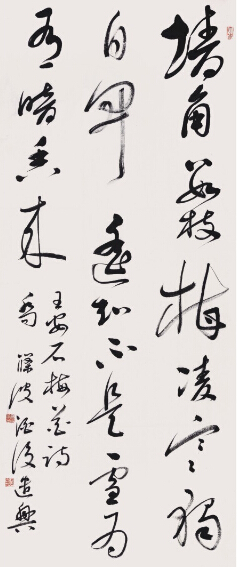 墙角数枝梅凌寒独
自开遥知不是雪为
有暗香来
王安石梅花诗
波酒後遣興